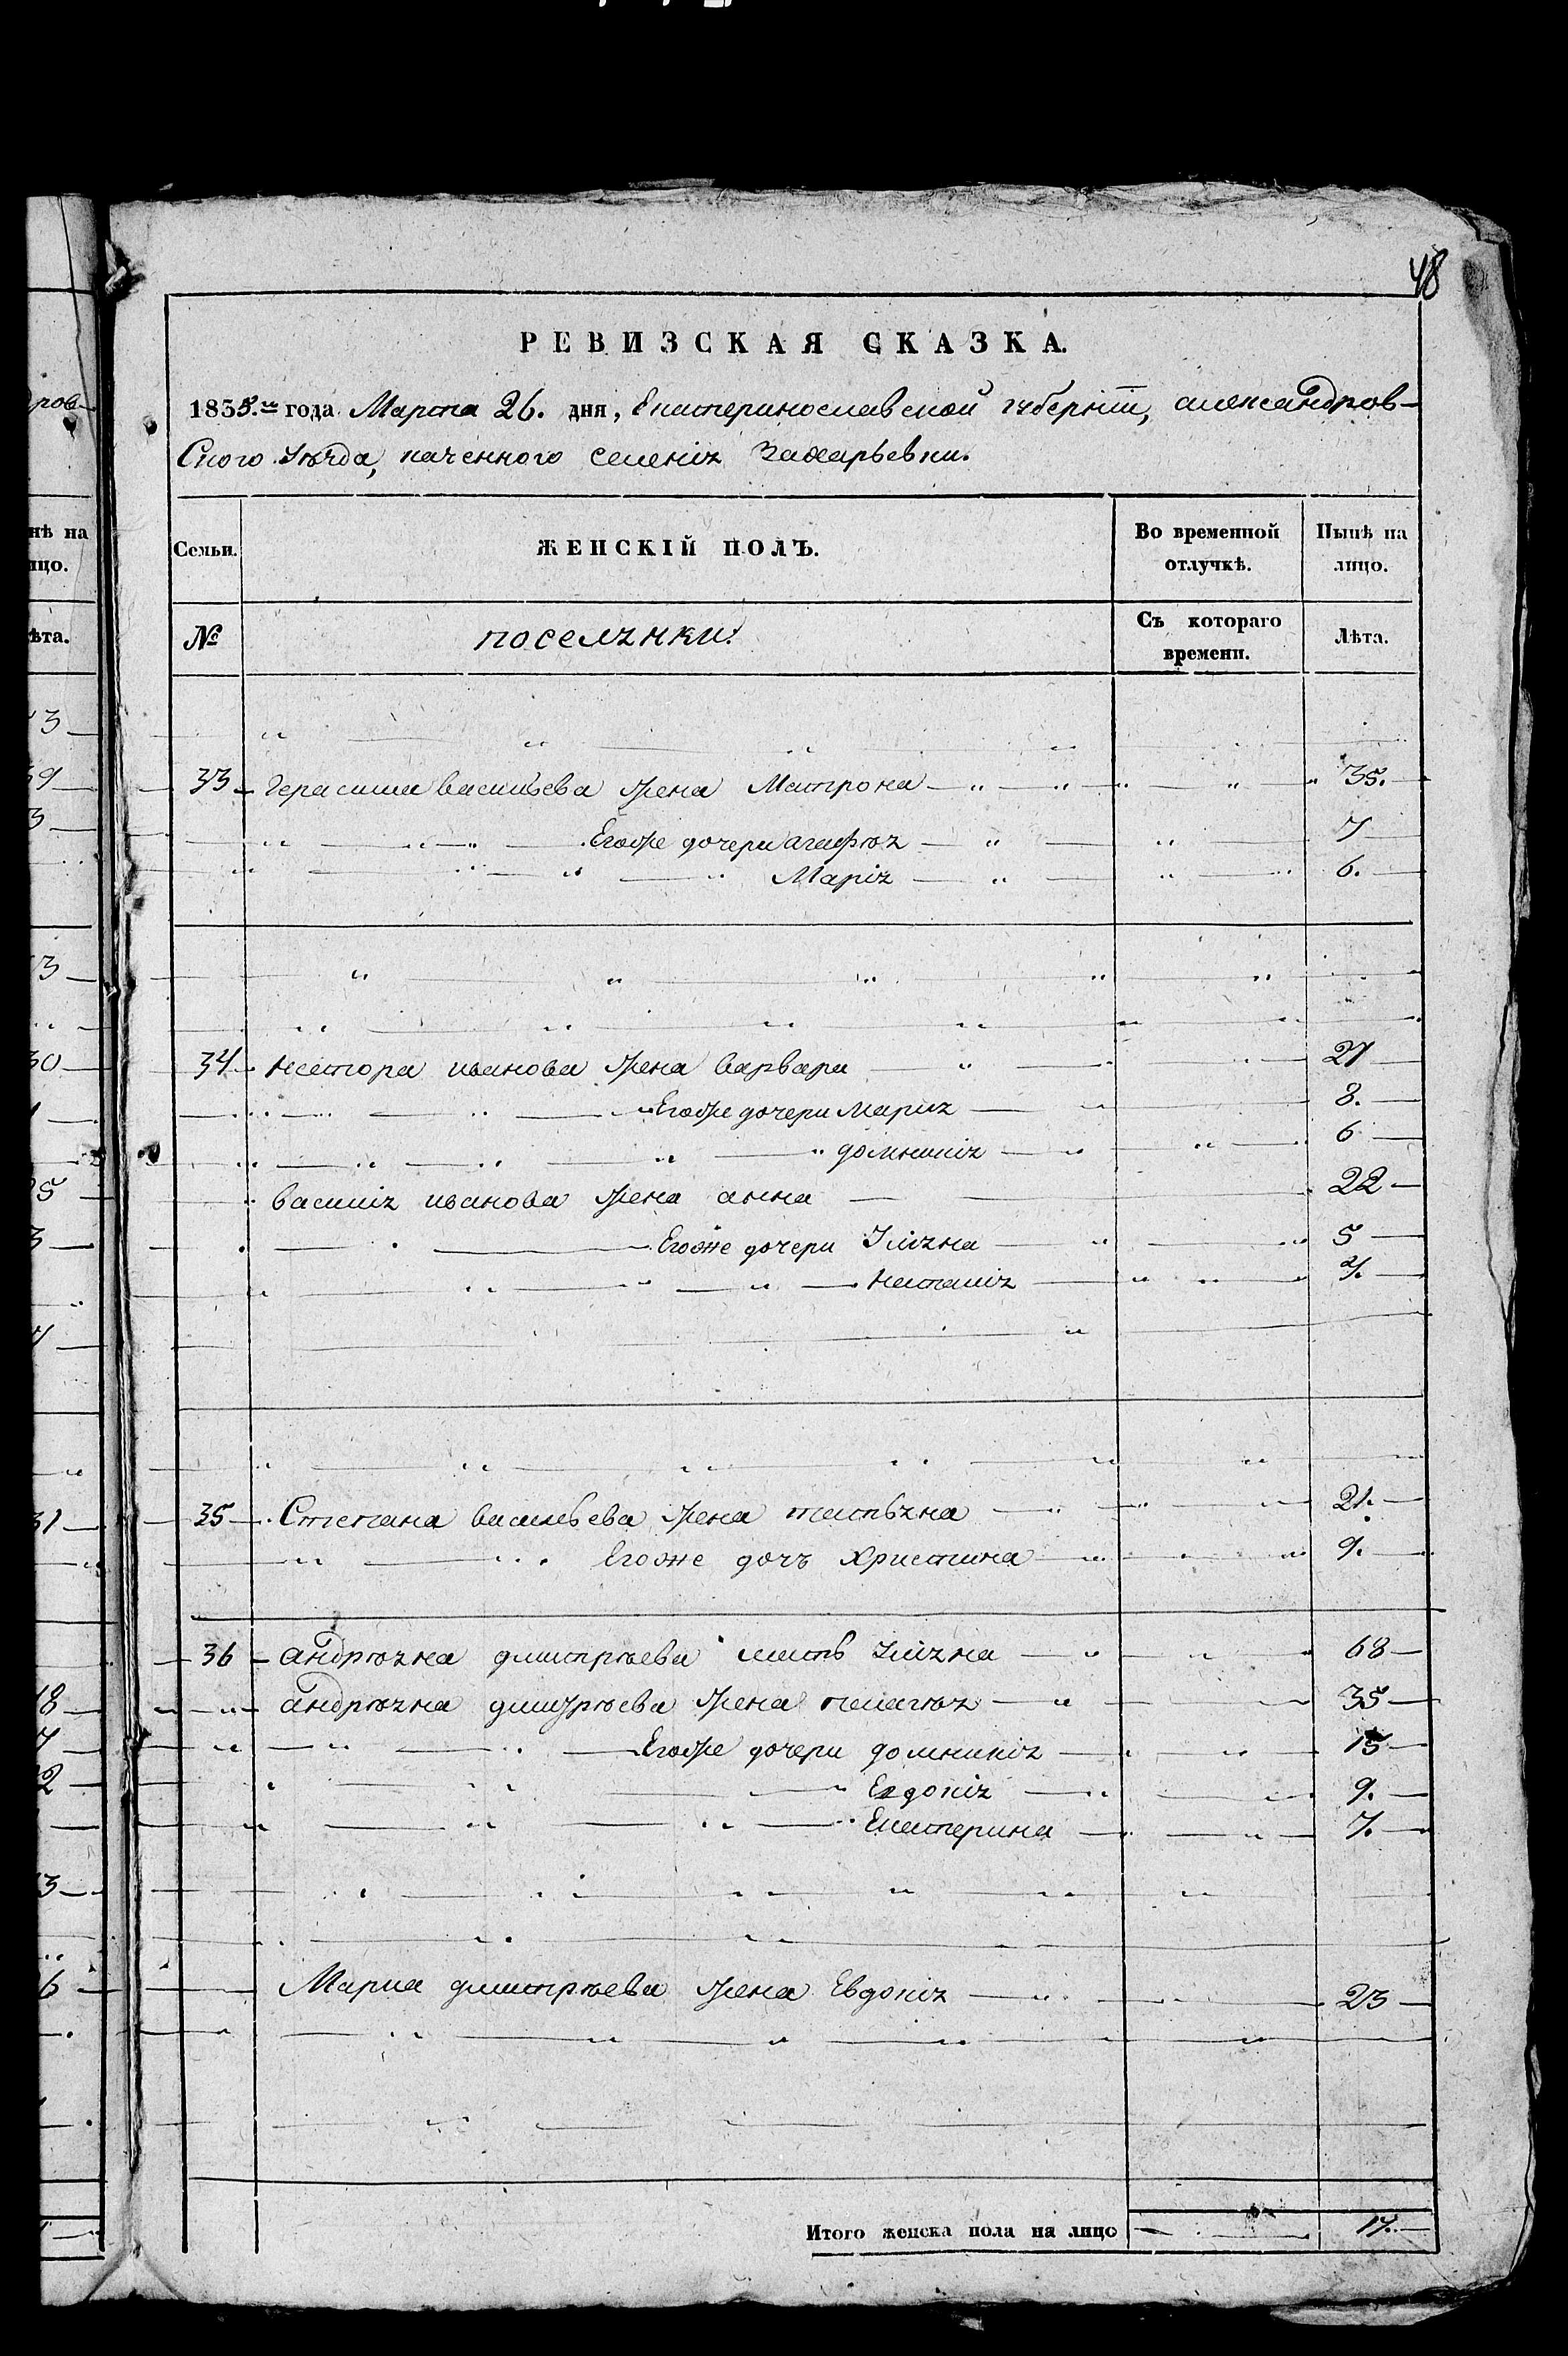 48
РЕВИЗСКАЯ СКАЗКА.
1835.го года Марта 26. дня, Екатеринославской губернии, александров-
Ского Уѣзда, казенного селенія Захарьевки.
Семьи. ЖЕНСКІЙ ПОЛЪ. Во временной отлучкѣ. Нынѣ на лицо.
№ поселянки. Съ котораго времени. Лѣта.
33 Герасима васильева жена Матрона 35.
Егоже дочери агафія 7
Марія 6.
34 Нестора иванова жена варвара 27
Егоже дочери Мария 8.
домникія 6
василія иванова жена анна 22
Егоже дочери Уліяна 5
Наталія 2.
35 Степана васильева жена татьяна 21.
Егоже дочъ Христина 9.
36 андріяна дмитріева мать Уліяна 68
андріяна дмитріева жена пелагія 35
Егоже дочери домникія 15
Евдокія 9.
Екатерина 7.
Марка дмитріева жена Евдокія 23
Итого женска пола на лицо 17.